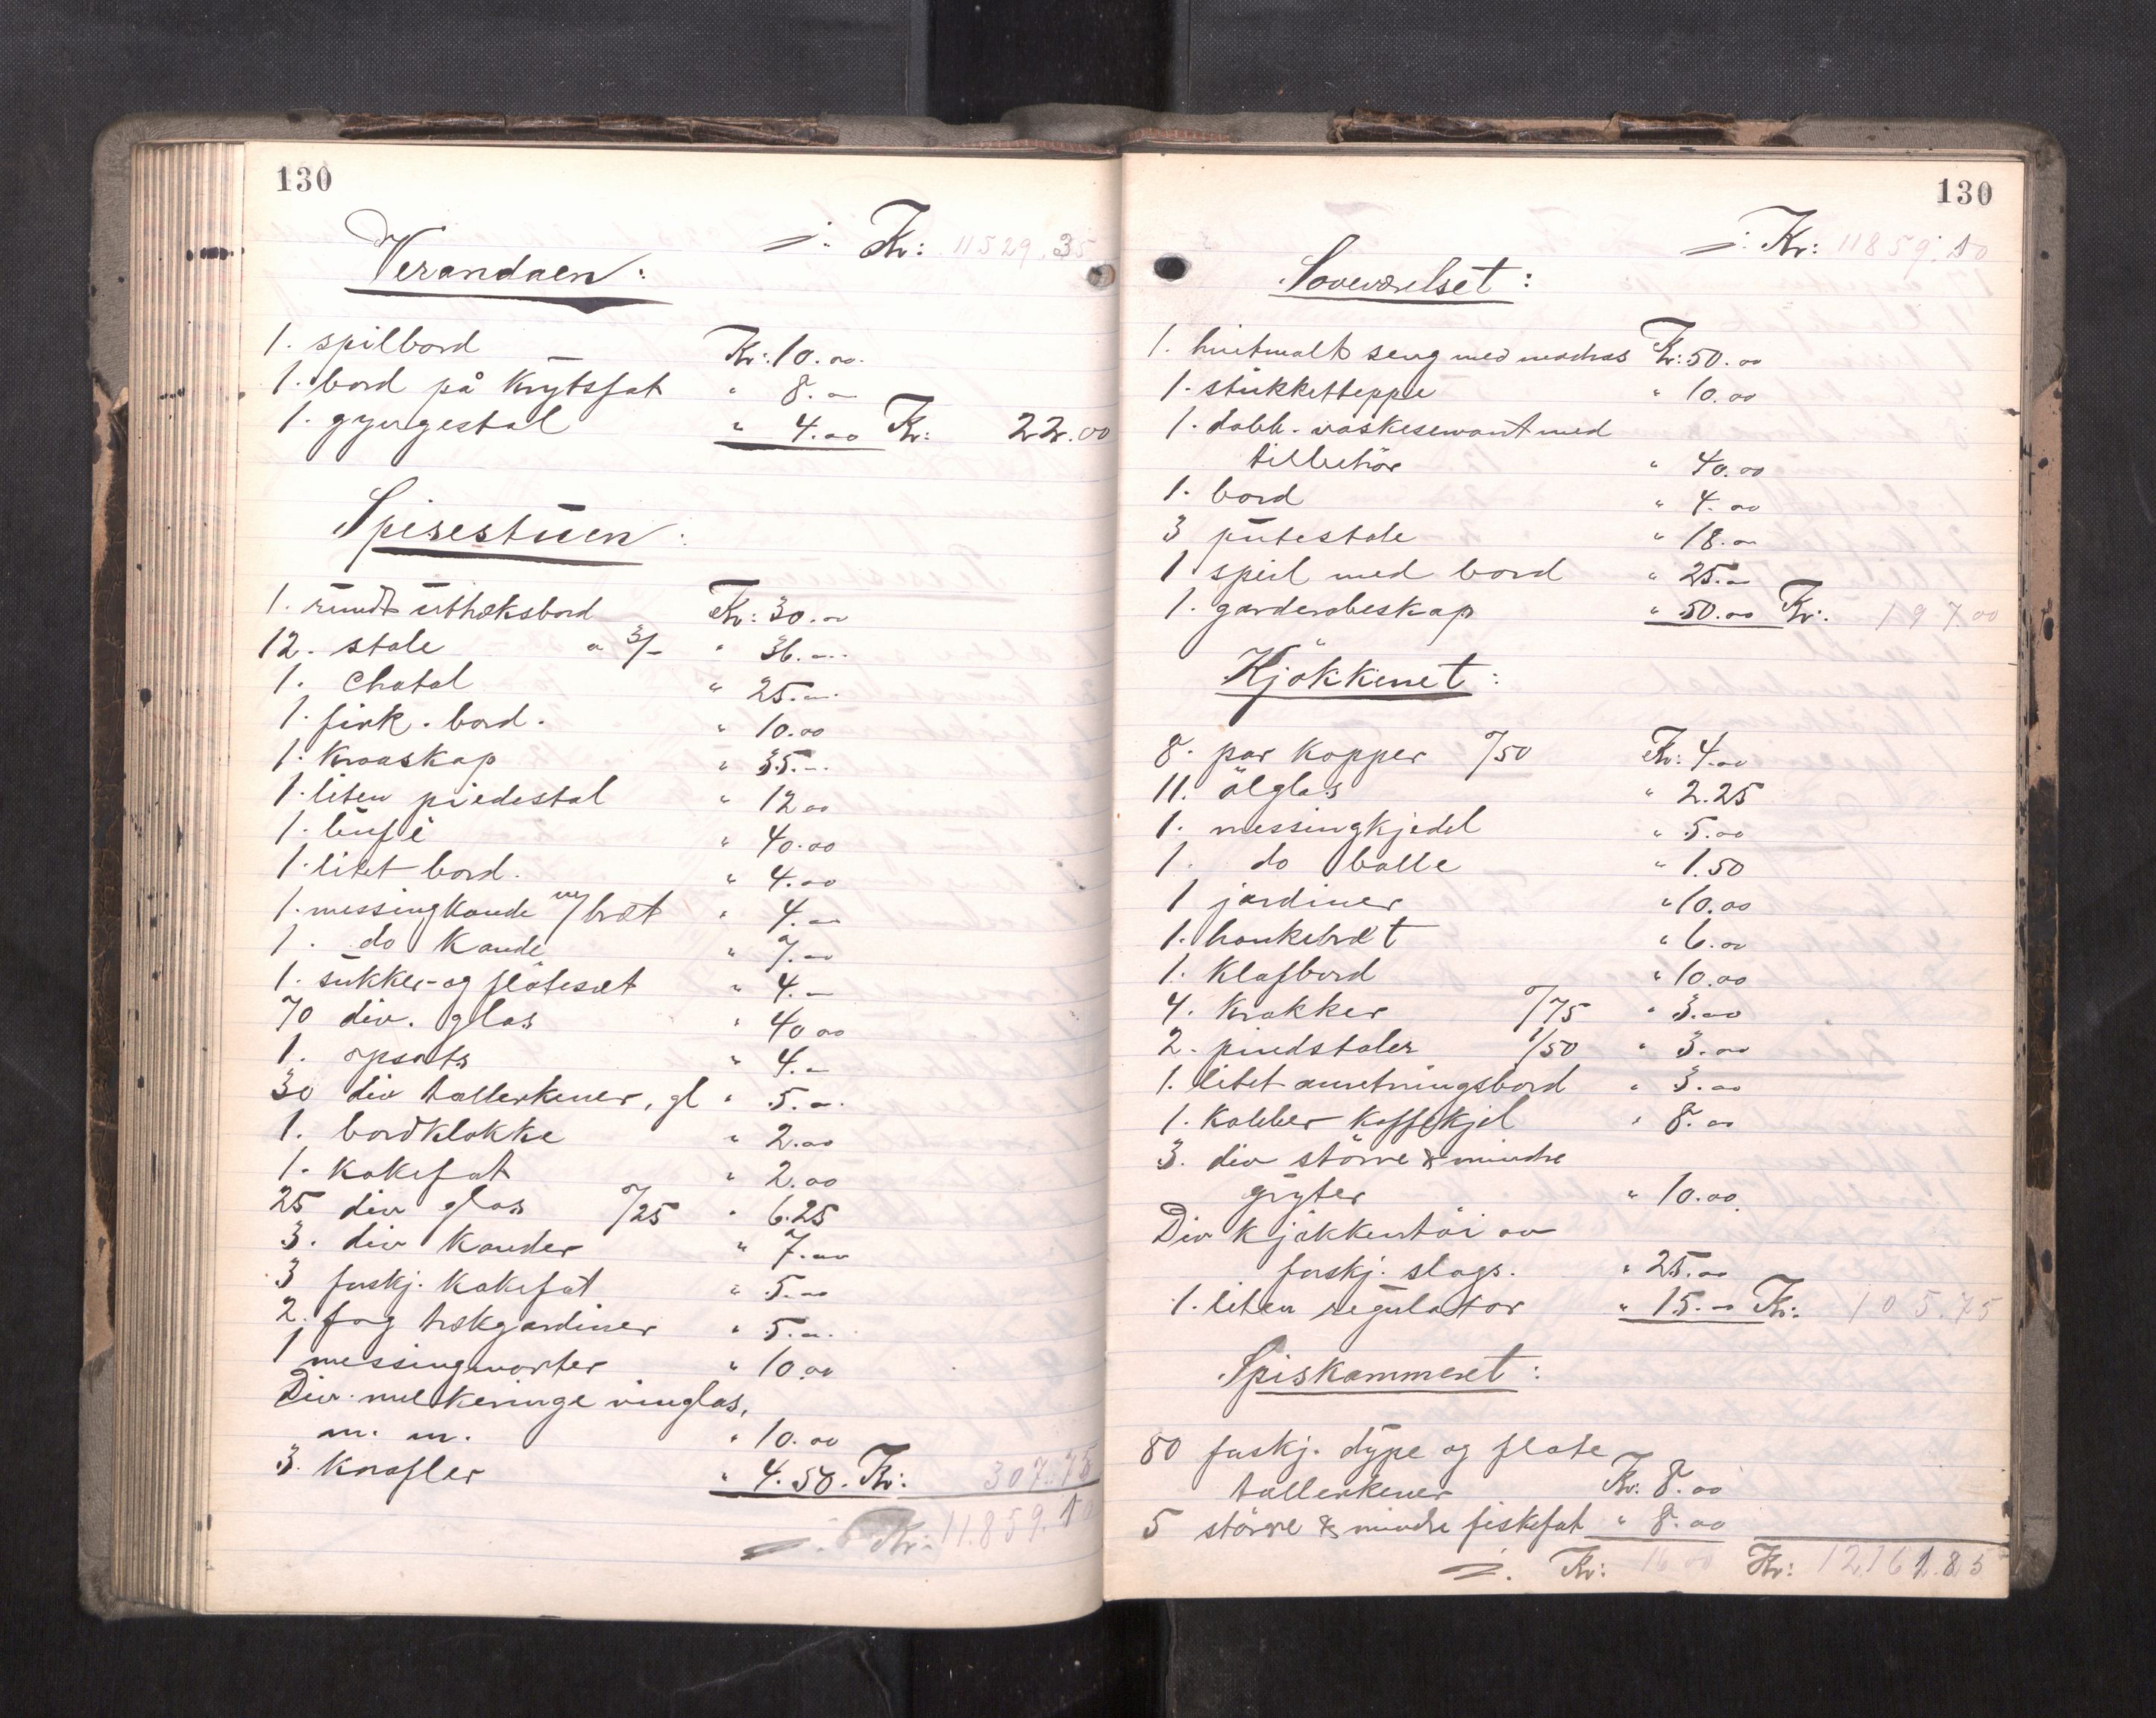 130
Kr: 11529.35
Verandaen:
1. spilbord Kr: 10.00
1. bord på krytsfat " 8.00
1. gyngestol " 4.00 Kr: 22.00
Spisestuen:
1. rundt uttræksbord Kr: 30.00
12. stole a 3/- " 36.00
1. Chatol " 25.00
1. firk. bord. " 10.00
1. kroaskap " 35.00
1. liten piedestal " 12 00
1. bufé " 40.00
1. litet bord. " 4.00
1. messingkande m/bræt " 4.00
1. do kande " 7.00
1. sukker- og flötesæt " 4.00
70 div. glas " 40 00
1. opsats " 4.00
30 div tallerkener, gl " 5.00
1. bordklokke " 2.00
1. kakefat " 2.00
25 div glas 0/25 " 6.25
3. div kander " 7.00
3 forskj. kakefat " 5.00
2. fag trækgardiner " 5.00
1 messingmorter " 10.00
Div. melkeringe vinglas,
m. m. " 10.00
3. knafler " 4.50. Kr: 307.75
Kr: 11.859.10
130
Kr: 11859.10
Soveværelset:
1. hvitmalt seng med madras Kr: 50.00
1. stukketteppe " 10.00
1. dobb. vaskeservant med
tilbehör " 40.00
1. bord " 4.00
3 putestole " 18.00
1 speil med bord " 25.00
1. garderobeskap " 50.00 Kr: 197.00
Kjökkenet:
8. par kopper 0/50 Kr: 4.00
11. ölglas " 2.25
1. messingkjedel " 5.00
1. do balle " 1.50
1 jardiner " 10.00
1. hankebræt " 6.00
1. klafbord " 10.00
4. krakker 0/75 " 3.00
2. pindstoler 1/50 " 3.00
1. litet anretningsbord " 3.00
1. kobber kaffekjel " 8.00
3. div större & mindre
gryter " 10.00
Div kjökkentöi av
forskj. slags. " 25.00
1. liten regulator " 15.00 Kr: 105.75
Spiskammeret:
80 forskj. dype og flate
tallerkener Kr: 8.00
5 större & mindre fiskefat " 8.00
Kr: 16 00 Kr: 12161.85